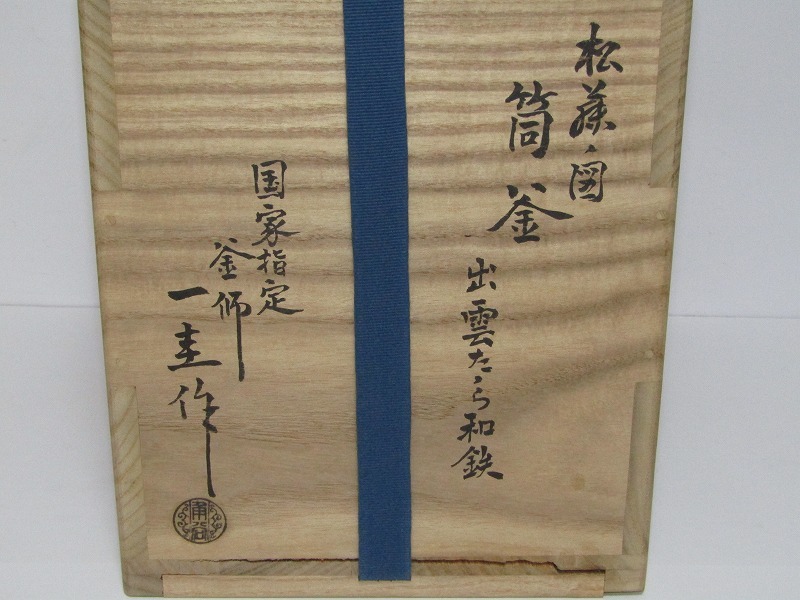 松藤ノ図
筒釜
出雲たゝら和鉄
国家指定
釜师
一圭作